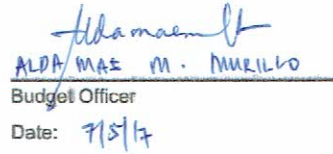 ALDA MAE M. MURILLO
Budget Officer
Date: 7/5/17